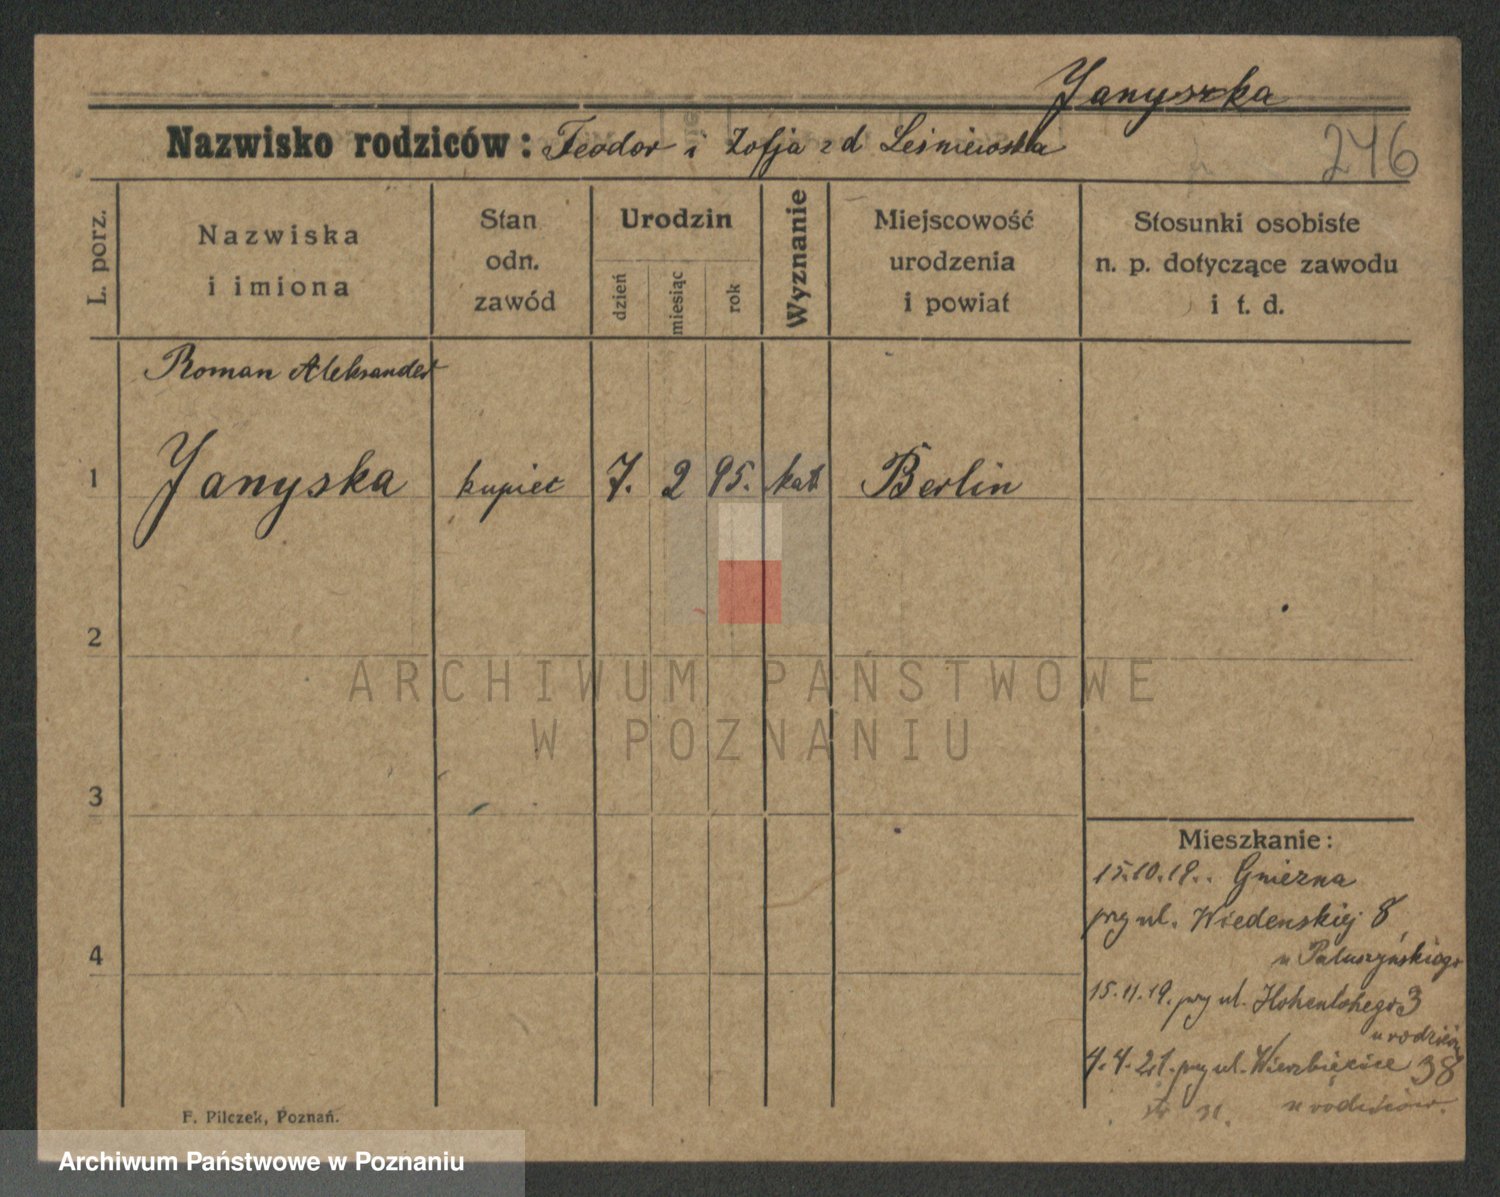 Janyszka
Nazwisko rodziców: Teodor i Zofja z d Leśniewska
246
L. porz.
Nazwiska
i imiona
Stan
odn.
zawód
Urodzin
dzień
miesiąc
rok
Wyznanie
Miejscowość
urodzenia
i powiat
Stosunki osobiste
n. p. dotyczące zawodu
i t. d.
Roman Aleksander
1 Janyska kupiec 7. 2 95. kat Berlin
2
ARCHIWUM PAŃSTWOWE
W POZNANIU
3
Mieszkanie:
15.10.19. Gniezna
przy ul. Wiedenskiej 8
u Paluszyńskiego
4
15.11.19. przy ul. Hohenlohego 3
u rodziców
4.4.21. przy ul. Wierzbięcice 38
u rodziców.
F. Pilczek, Poznań.
Archiwum Państwowe w Poznaniu